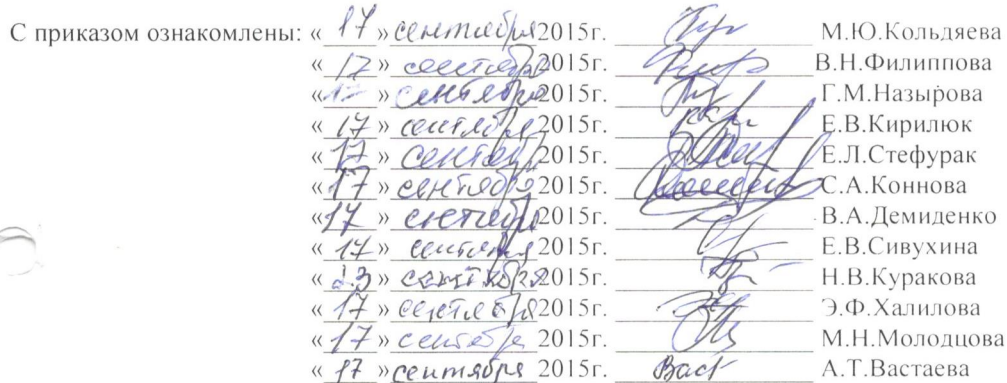 С приказом ознакомлены: « 17 » сентября 2015г. М.Ю.Кольдяева
« 17 » сентября 2015г. В.Н.Филиппова
« 17 » сентября 2015г. Г.М.Назырова
« 17 » сентября 2015г. Е.В.Кирилюк
« 17 » сентября 2015г. Е.Л.Стефурак
« 17 » сентября 2015г. С.А.Коннова
« 17 » сентября 2015г. В.А.Демиденко
« 17 » сентября 2015г. Е.В.Сивухина
« 23 » сентября 2015г. Н.В.Куракова
« 17 » сентября 2015г. Э.Ф.Халилова
« 17 » сентября 2015г. М.Н.Молодцова
« 17 » сентября 2015г. Васт А.Т.Вастаева